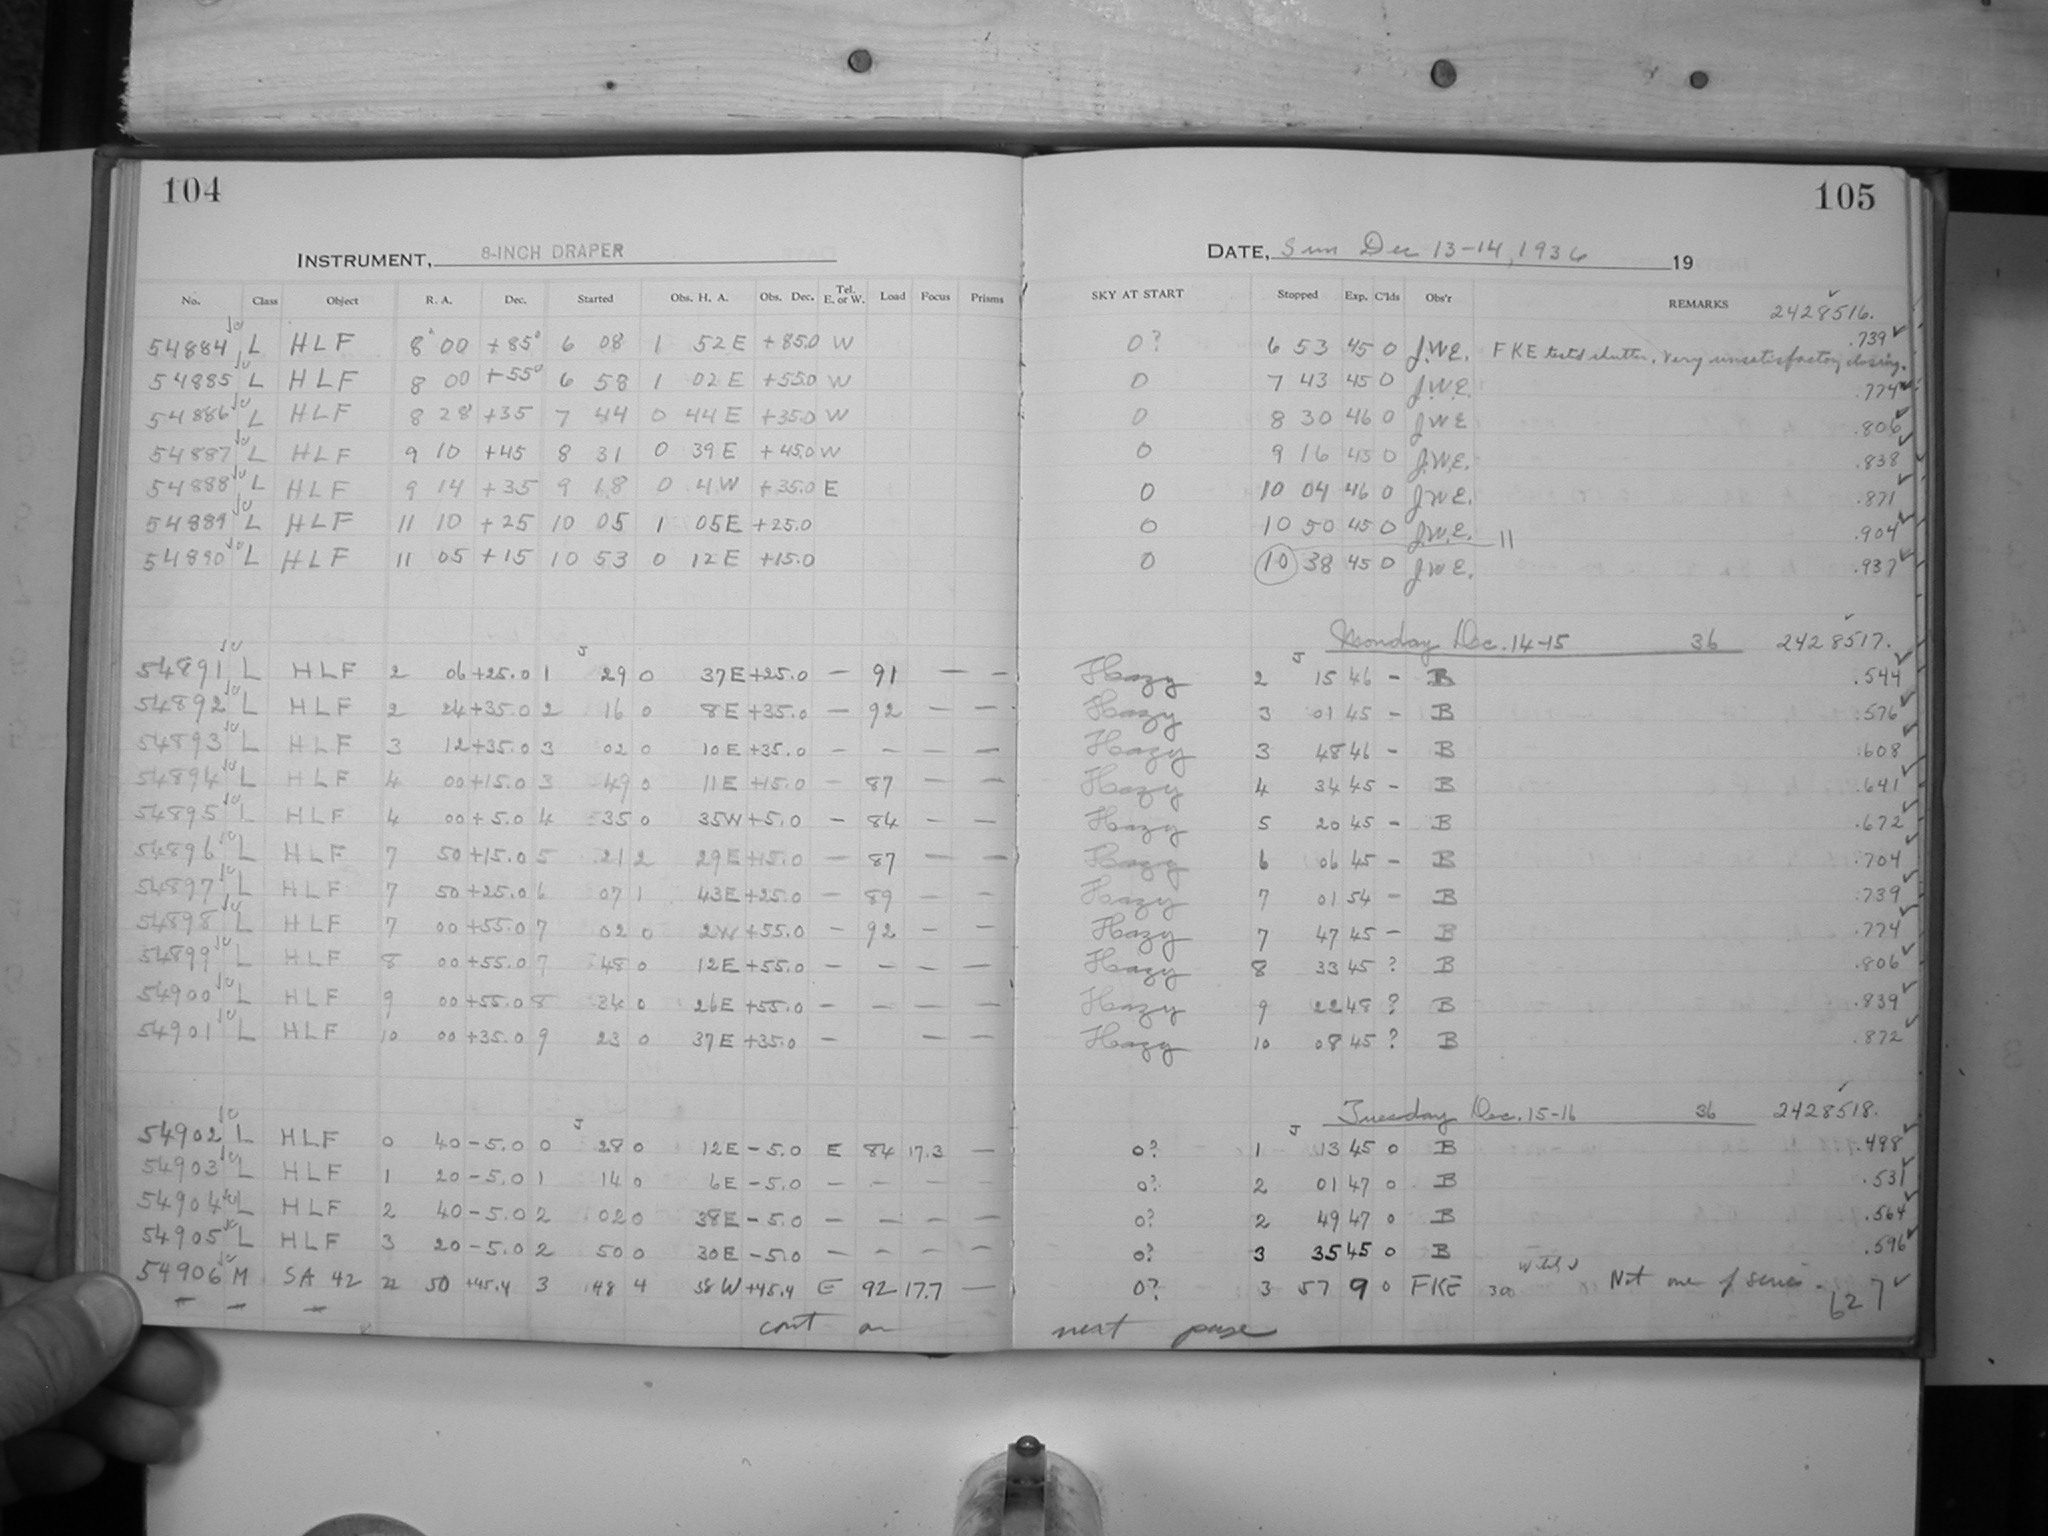 104
INSTRUMENT, 8-INCH DRAPER
No. Class Object R. A. Dec. Started Obs. H. A. Obs. Dec. Tel. E. or W. Load Focus Prisms
54884 L HLF 8h 00 +85° 6 08 1 52 E +85.0 W
54885 L HLF 8 00 +55° 6 58 1 02 E +55.0 W
54886 L HLF 8 28 +35 7 44 0 44 E +35.0 W
54887 L HLF 9 10 +45 8 31 0 39 E +45.0 W
54888 L HLF 9 14 +35 9 18 0 4 W +35.0 E
54889 L HLF 11 10 +25 10 05 1 05E +25.0
54890 L HLF 11 05 +15 10 53 0 12E +15.0
54891 L HLF 2 06 +25.0 1 29 0 37E +25.0 — 91 — —
54892 L HLF 2 24 +35.0 2 16 0 8E +35.0 — 92 — —
54893 L HLF 3 12 +35.0 3 02 0 10E +35.0 — — — —
54894 L HLF 4 00 +15.0 3 49 0 11E +15.0 — 87 — —
54895 L HLF 4 00 +5.0 4 35 0 35W +5.0 — 84 — —
54896 L HLF 7 50 +15.0 5 21 2 29E +15.0 — 87 — —
54897 L HLF 7 50 +25.0 6 07 1 43E +25.0 — 89 — —
54898 L HLF 7 00 +55.0 7 02 0 2W +55.0 — 92 — —
54899 L HLF 8 00 +55.0 7 48 0 12E +55.0 — — — —
54900 L HLF 9 00 +55.0 8 34 0 26E +55.0 — — — —
54901 L HLF 10 00 +35.0 9 23 0 37E +35.0 — — —
54902 L HLF 0 40 -5.0 0 28 0 12E -5.0 E 84 17.3 —
54903 L HLF 1 20 -5.0 1 14 0 6E -5.0 — — — —
54904 L HLF 2 40 -5.0 2 02 0 38E -5.0 — — — —
54905 L HLF 3 20 -5.0 2 50 0 30E -5.0 — — — —
54906 M SA 42 22 50 +45.4 3 48 4 58 W +45.4 E 92 17.7 —
cont on
105
DATE, Sun Dec 13-14, 1936 19
SKY AT START Stopped Exp. C'lds Obs'r REMARKS
2428516.
0? 6 53 45 0 J.W.E. FKE tested shutter. Very unsatisfactory closing. .739
0 7 43 45 0 J.W.E. .774
0 8 30 46 0 JWE .806
0 9 16 45 0 J.W.E. .838
0 10 04 46 0 JWE. .871
0 10 50 45 0 J.W.E. .904
11
0 10 38 45 0 J.W.E. .937
Monday Dec. 14-15 36 2428517.
Hazy 2 15 46 — B .544
Hazy 3 01 45 — B .576
Hazy 3 48 46 — B .608
Hazy 4 34 45 — B .641
Hazy 5 20 45 — B .672
Hazy 6 06 45 — B .704
Hazy 7 01 54 — B .739
Hazy 7 47 45 — B .774
Hazy 8 33 45 ? B .806
Hazy 9 22 48 ? B .839
Hazy 10 08 45 ? B .872
Tuesday Dec. 15-16 36 2428518.
0? 1 13 45 0 B .498
0? 2 01 47 0 B .531
0? 2 49 47 0 B .564
0? 3 35 45 0 B .596
0? 3 57 9 0 FKE 300 Not one of series. 627
next page